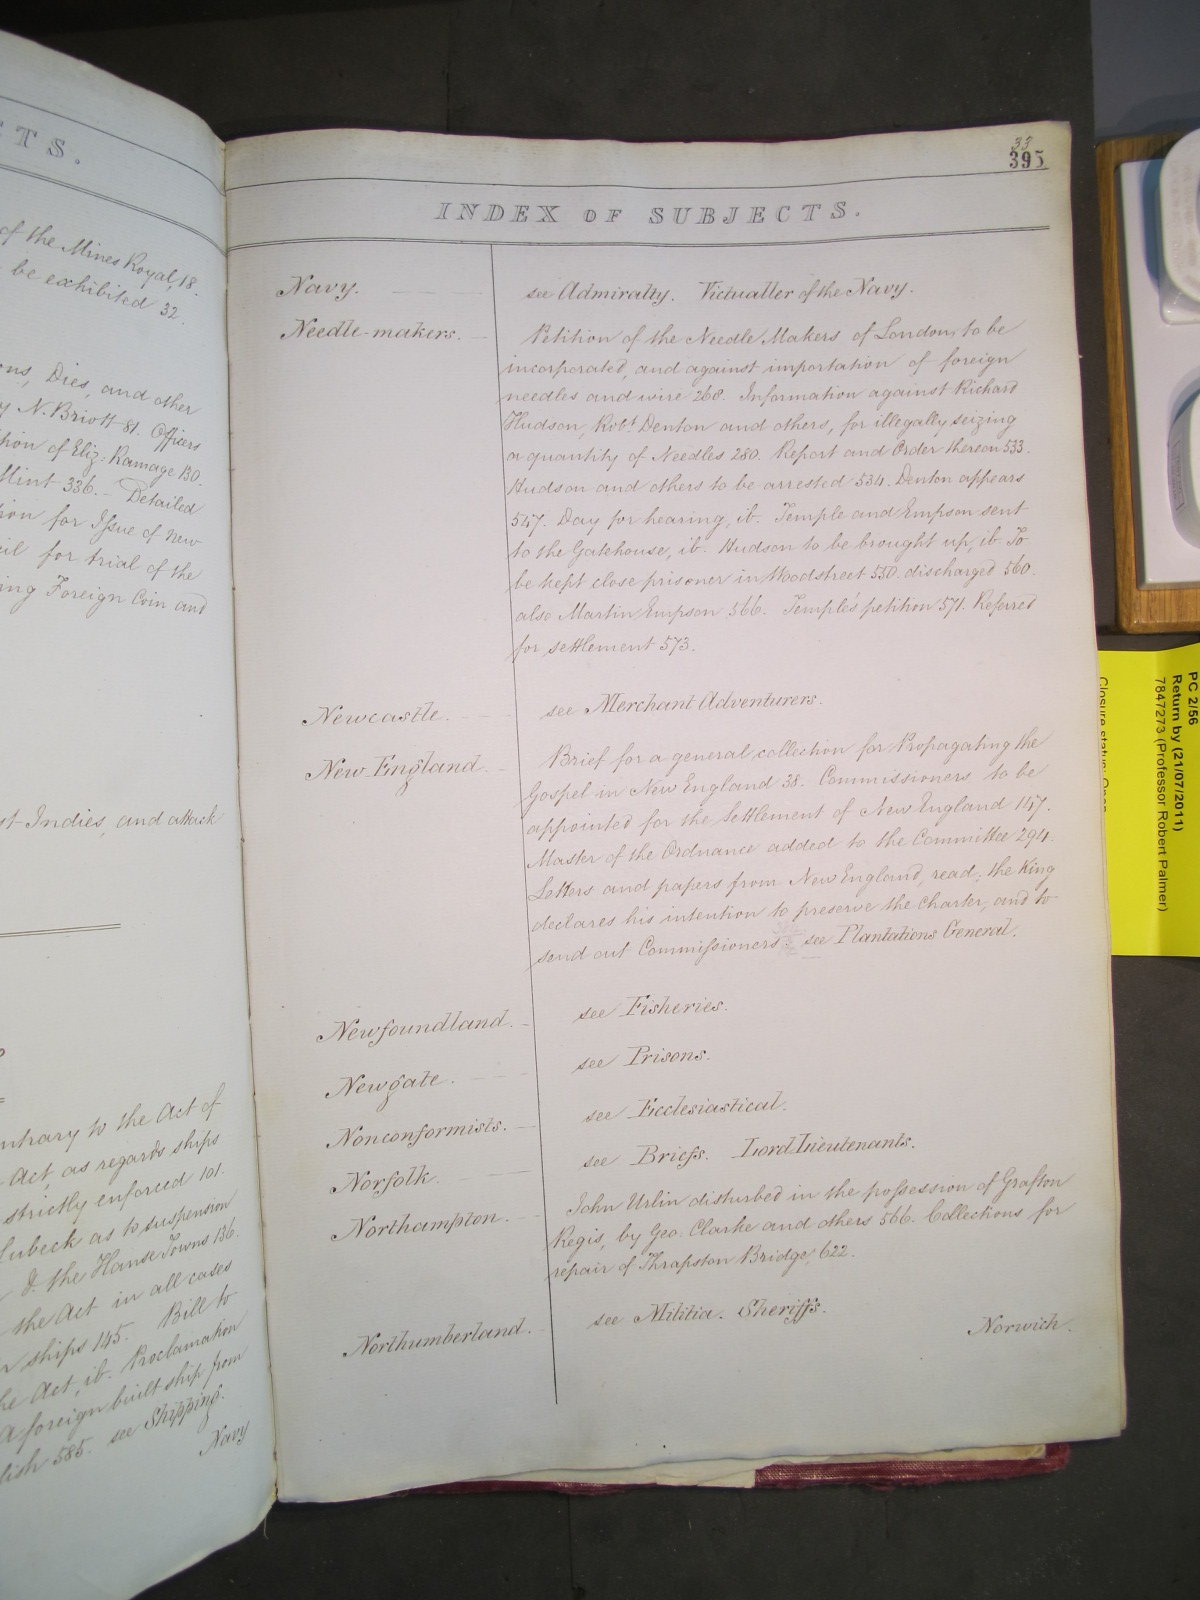 CTS.
of the Mines Royal, 18.
be exhibited 32.
ons, Dies, and other
by N. Briott 81. Officers
tion of Eliz: Ramage 130.
Mint 336. – Detailed
ion for Issue of New
cil for trial of the
ing Foreign Coin and
st-Indies, and attack
ntrary to the Act of
Act, as regards ships
strictly enforced 101.
Lubeck as to suspension
& the Hanse Towns 136.
the Act in all cases
ships 145. Bill to
he Act, ib. Proclamation
A foreign built ship from
lish 585. see Shipping.
Navy
33
395
INDEX OF SUBJECTS.
Navy. see Admiralty. Victualler of the Navy.
Needle-makers. Petition of the Needle Makers of London, to be
incorporated, and against importation of foreign
needles and wire 268. Information against Richard
Hudson, Robt. Denton and others, for illegally seizing
a quantity of Needles 280. Report and Order thereon 533.
Hudson and others to be arrested 534. Denton appears
547. Day for hearing, ib. Temple and Empson sent
to the Gatehouse, ib. Hudson to be brought up, ib. To
be kept close prisoner in Woodstreet 550. discharged 560.
also Martin Empson 566. Temple's petition 571. Referred
for settlement 573.
Newcastle. see Merchant Adventurers.
New England. Brief for a general collection for Propagating the
Gospel in New England 38. Commissioners to be
appointed for the Settlement of New England 147.
Master of the Ordnance added to the Committee 294.
Letters and papers from New England, read; the King
declares his intention to preserve the Charter, and to
send out Commissioners see Plantations General.
Newfoundland. see Fisheries.
Newgate. see Prisons.
Nonconformists. see Ecclesiastical.
Norfolk. see Briefs. Lord Lieutenants.
Northampton. John Urlin disturbed in the possession of Grafton
Regis, by Geo. Clarke and others 566. Collections for
repair of Thrapston Bridge, 622.
Northumberland. see Militia. Sheriffs.
Norwich.
PC 2/56
Return by (21/07/2011)
7847273 (Professor Robert Palmer)
Closure status: Open